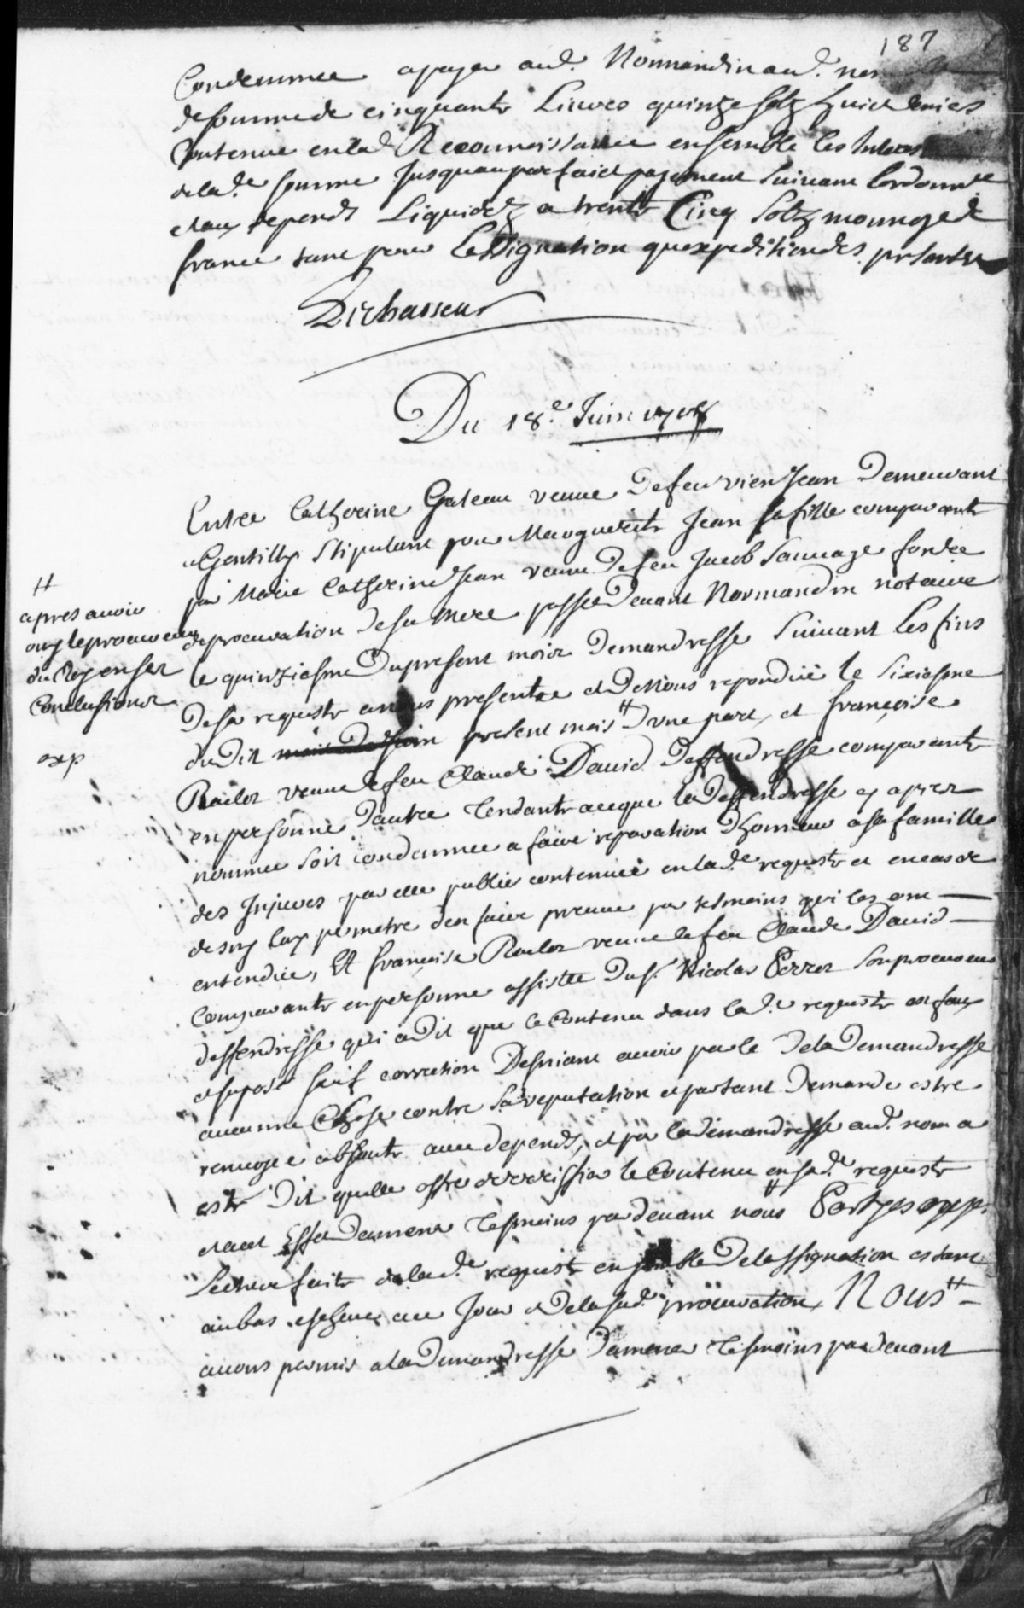 187
Condemnee a payer aud. Normandin aud. nom
de somme de cinquante Livres quinze solz huict deniers
Contenue en lad. Reconnoissance ensemble les Interest
de lad.e somme Jusquau parfaict payement suivant lordonn.ce
et aux depends Liquidez a trente Cinq solz monnoye de
france tant pour lassignation qu expedition des presentes
Dechasseur
Du 18.e Juin
Entre Catherine Gateau veuve de feu vien Jean Demeurant
a Gentilly Stipulant pour Margueritte Jean sa fille comparante
par Marie Catherine Jean veuve de feu Jacob Sauvage fondee
de procuration de sa mere passée devant Normandin notaire
le quinziesme du present mois demandresse suivant les fins
de sa requeste a nous presentée et de Nous repondue le sixiesme
du dit mois de Juin present mois # d'une part, et françoise
Raclos veuve de feu Claude David deffendresse comparante
en personne dautre Tendante a ce que la deffendresse cy apres
nommee soit condemnee a faire reparation dhonneur a sa famille
des Injures par elle publiées contenües en lad.e requeste et en cas de
desny luy permetre den faire preuve par tesmoins qui les ont
entendües, Et françoise Raclos veuve de feu Claude David
Comparante en personne assistée du S.r Nicolas Perrot son procureur
deffendresse qui a dit que le Contenu dans lad.e requeste est faux
et suposé sauf correction Desniant avoir parlé de la Demandresse
aucunne Chose contre sa reputation et partant demande estre
renvoyée absoute avec depends, et par la demandresse aud. nom a
esté dit qu'elle offre de verifier le Contenu en sad.e requeste
et a cet Effet damener Tesmoins par devant nous Partyes oyes
Lecture faite de lad.e requeste ensemble de lassignation estant
au bas escheue a ce Jour et de la sud.e procuration, Nous #
avons permis a la Demandresse Damener Tesmoins par devant
#
apres avoir
ouy le procureur
du Roy en ses
Conclusions
exp